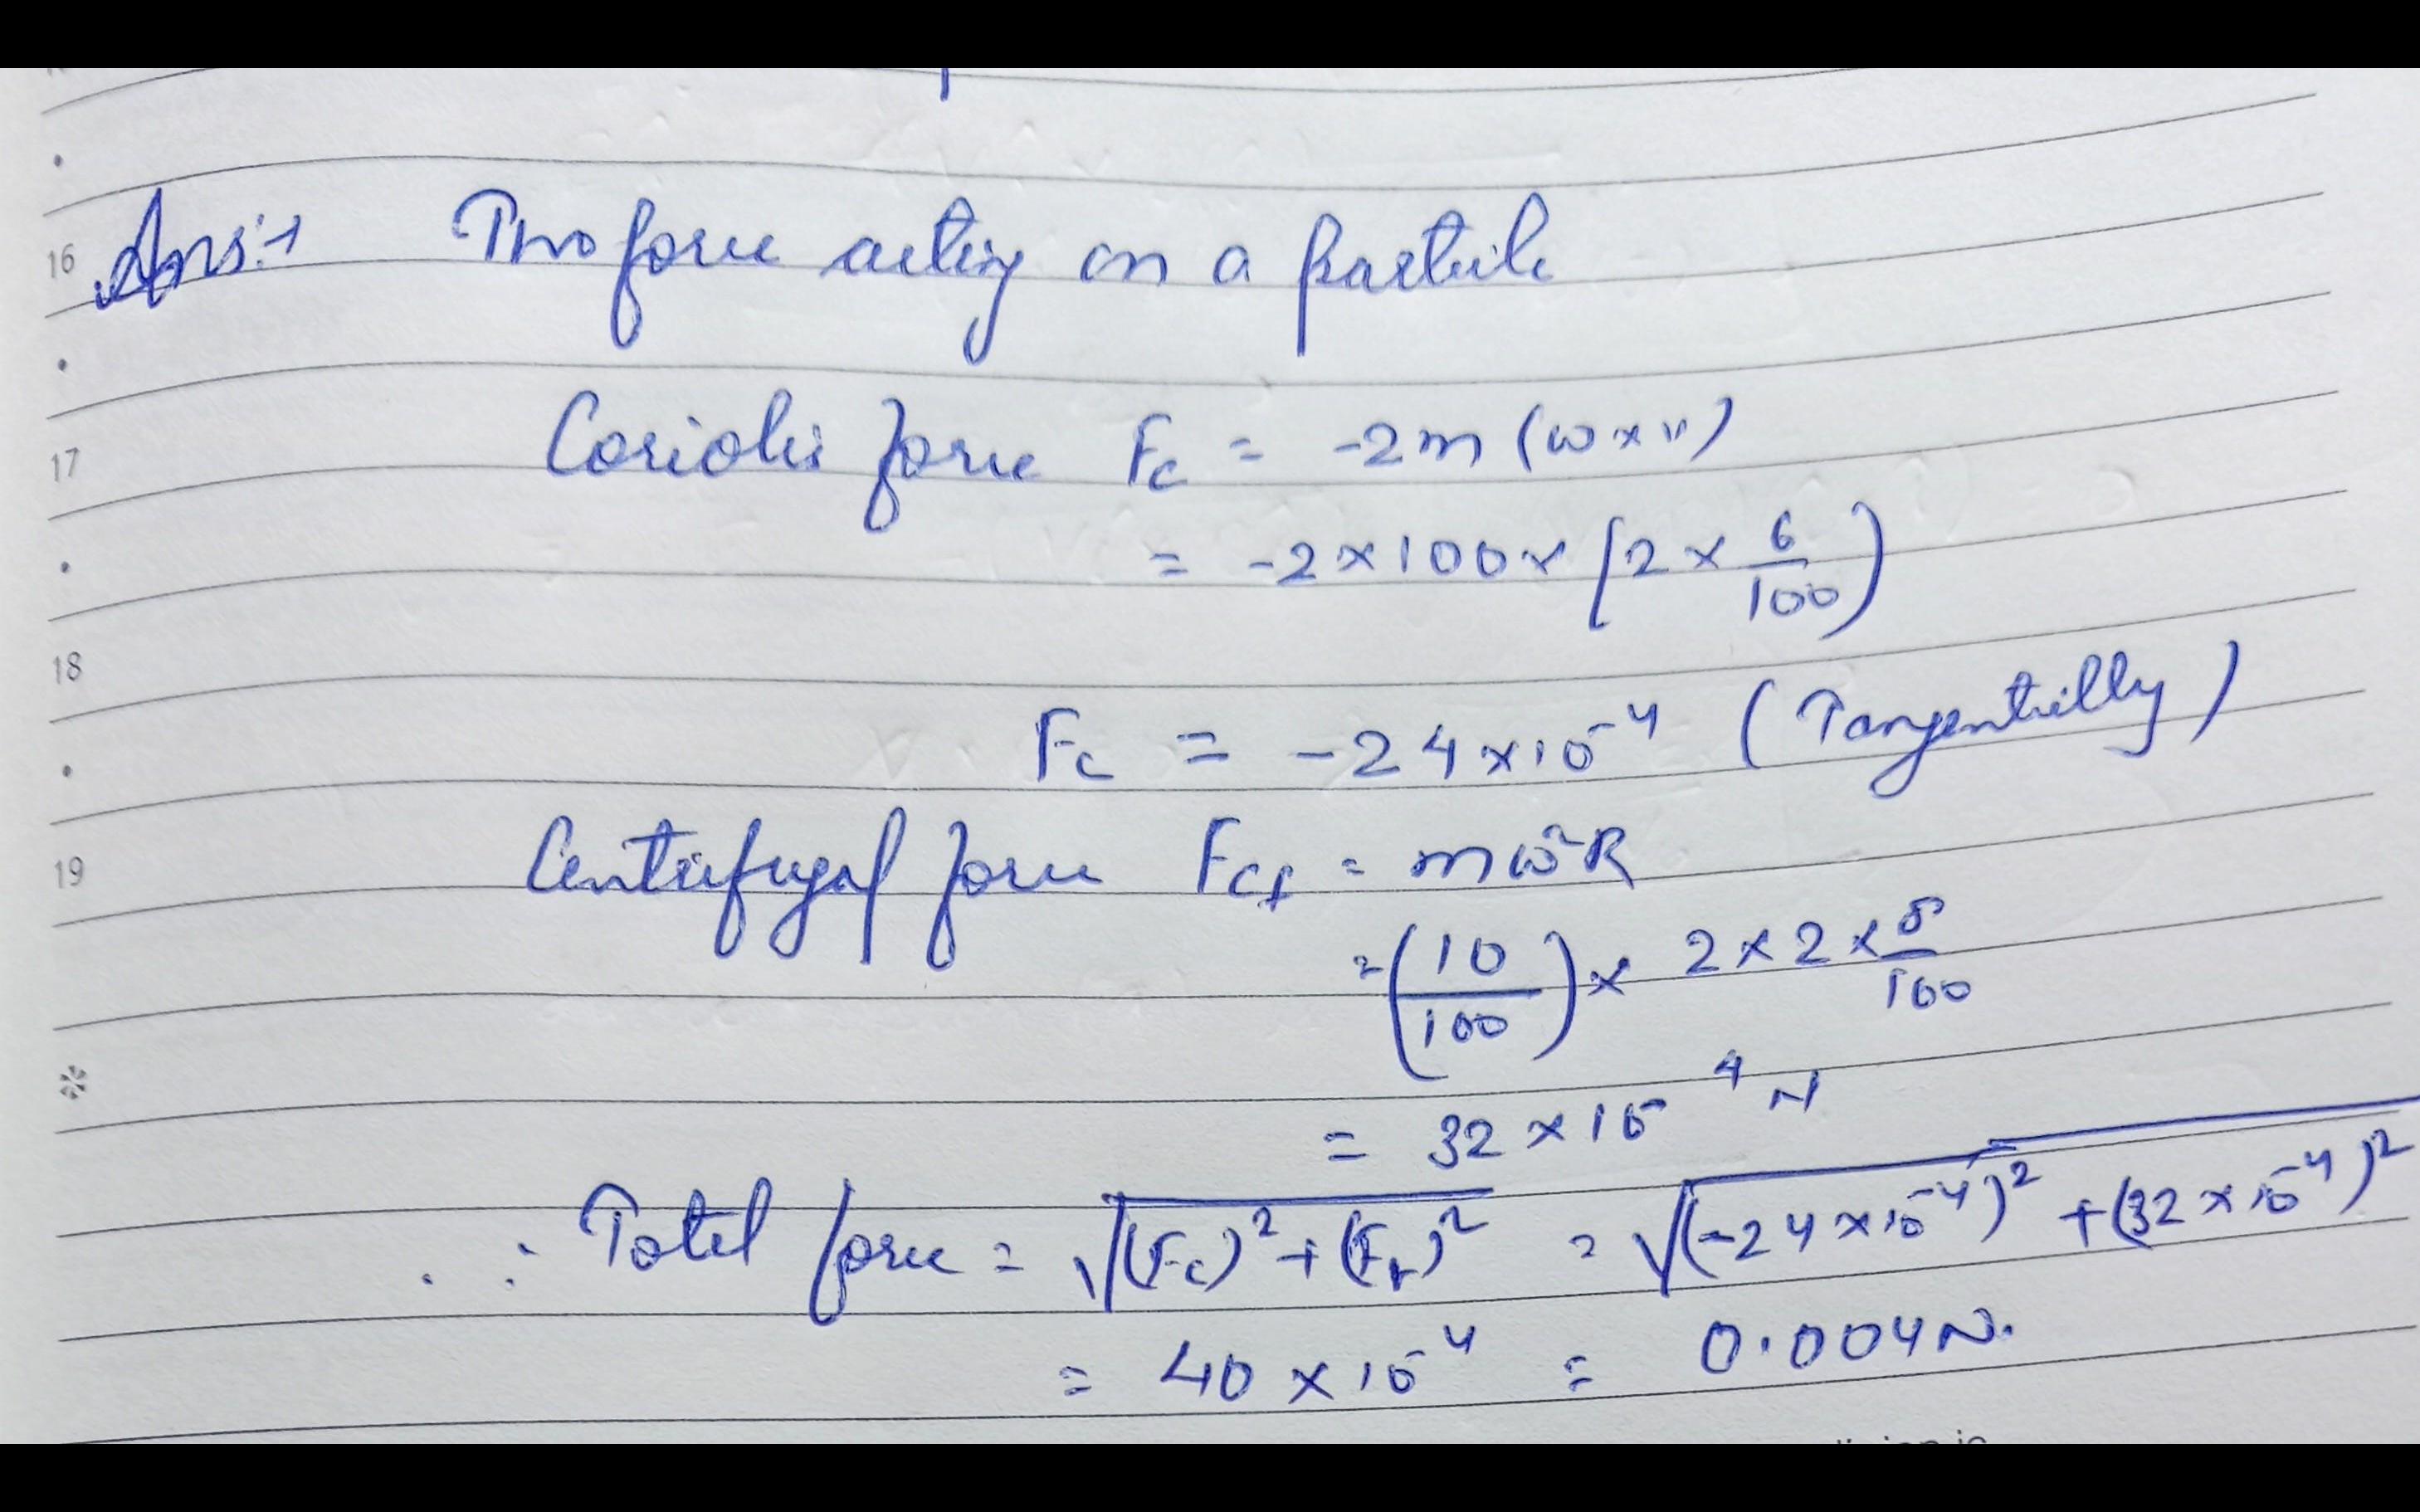 16 Ans:→ Two force acting on a particle
17 Coriolis force Fc = -2m (ω × v)
= -2 × 100 × (2 × 6/100)
18
Fc = -24 × 10⁻⁴ (Tangentially)
19 Centrifugal force Fcf = mω²R
= (10/100) × 2 × 2 × 8/100
= 32 × 10⁻⁴ N
∴ Total force = √(Fc)² + (Fr)² = √(-24 × 10⁻⁴)² + (32 × 10⁻⁴)²
= 40 × 10⁻⁴ = 0.004 N.